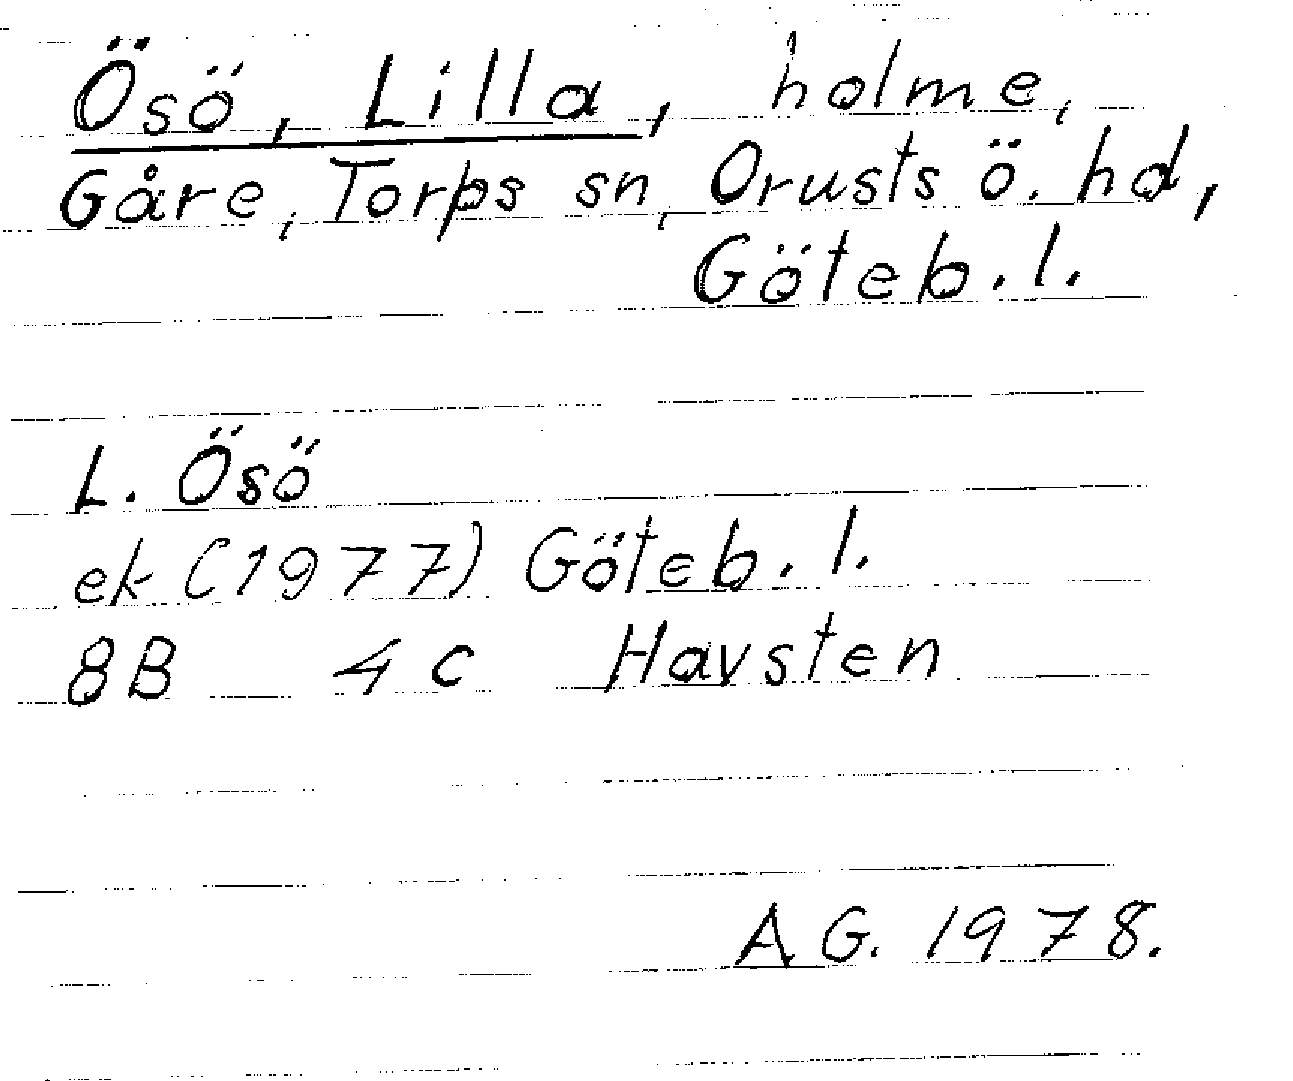 Ösö, Lilla, holme,
Gåre, Torps sn, Orusts ö. hd,
Göteb. l.
L. Ösö
ek (1977) Göteb. l.
8B 4c Havsten
A.G. 1978.